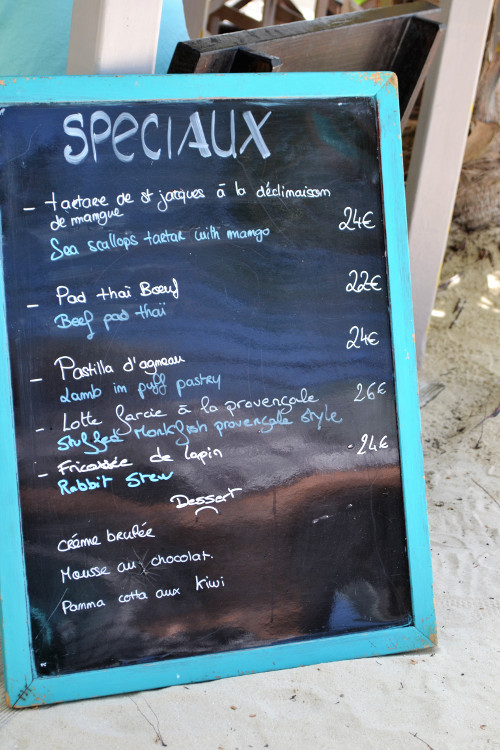 SPECIAUX
- tartare de st jacques à la déclinaison
de mangue
24€
Sea scallops tartar with mango
- Pad thaï Boeuf
22€
Beef pad thaï
- Pastilla d'agneau
24€
Lamb in puff pastry
- Lotte farcie à la provençale
26€
Stuffed Monkfish provençale style
- Fricassée de lapin
24€
Rabbit Stew
Dessert
crème brulée
Mousse au chocolat.
Panna cotta aux kiwi